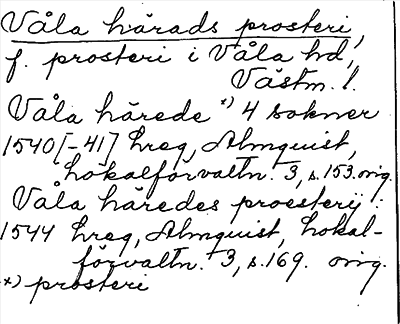 Våla härads prosteri,
f. prosteri i Våla hd,
Västm. l.
Våla härede *) 4 sokner
1540[-41] hreg, Almquist,
Lokalförvaltn. 3, s. 153. orig.
Våla häredes proesterij:
1544 hreg, Almquist, Lokal-
förvaltn. 3, s. 169. orig.
*) prosteri